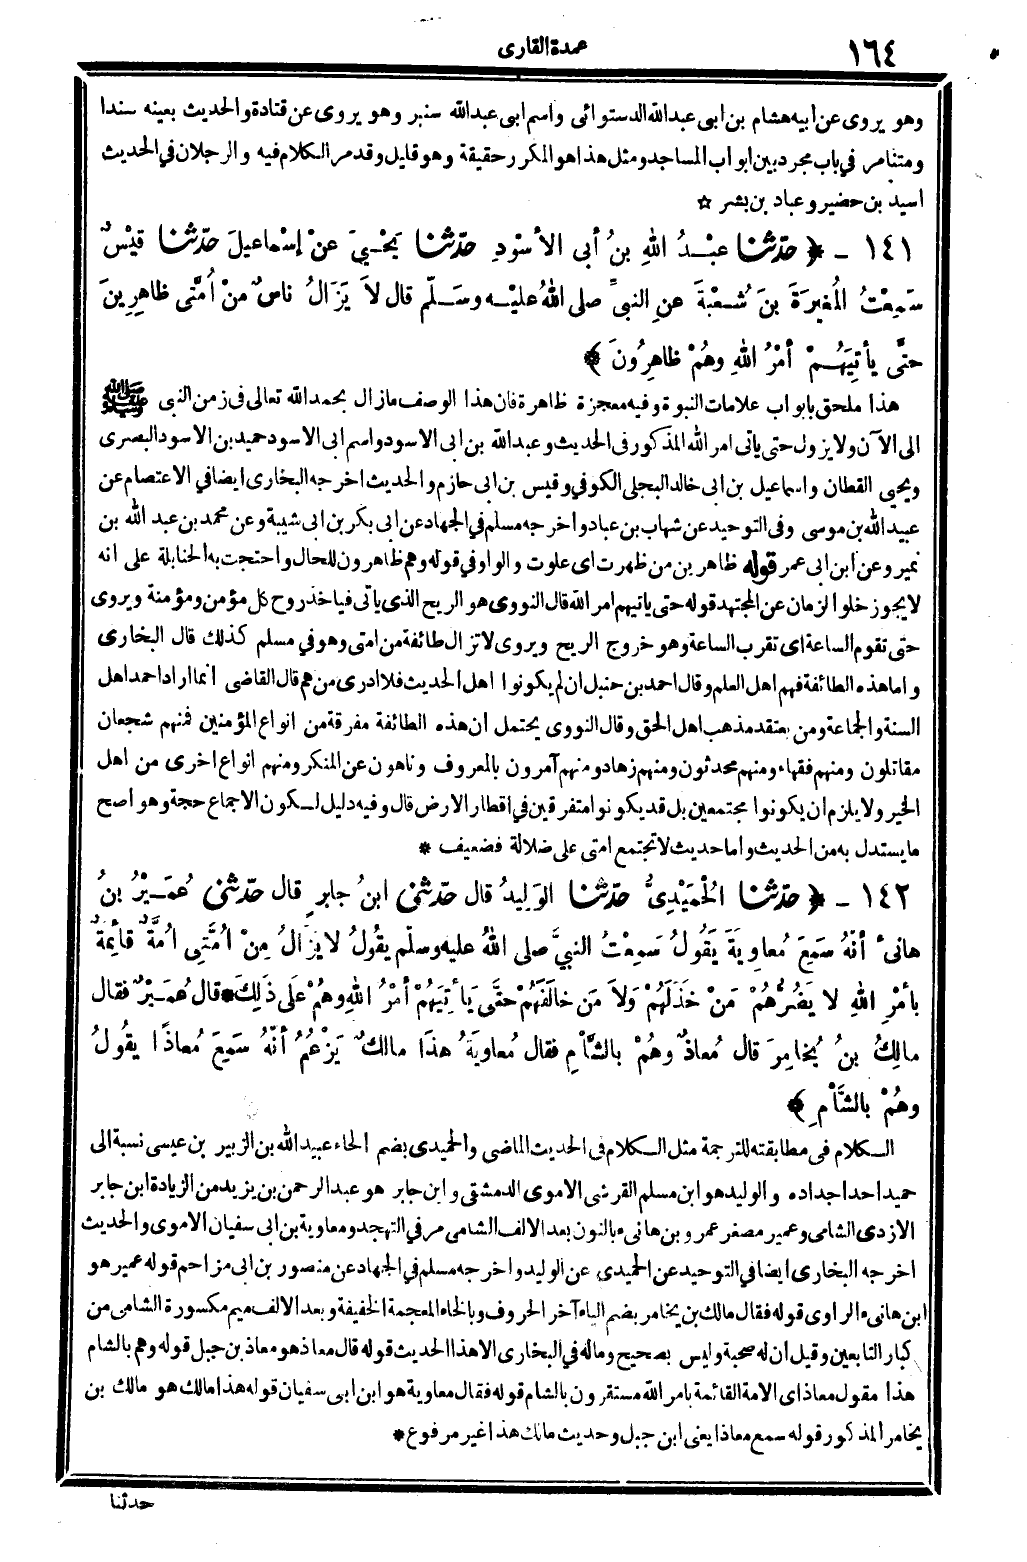 ١٦٤
عمدة القارى
وهو يروى عن أبيه هشام بن ابى عبدالله الدستوائى واسم ابى عبدالله سنبر وهو يروى عن قتادة والحديث بعينه سندا
ومتنا مر في باب مجرد بين ابواب المساجد ومثل هذا هو المكرر حقيقة وهو قليل وقد مر الكلام فيه والرجلان في الحديث
اسيد بن حضير وعباد بن بشر ☆
١٤١ - ﴿ حدّثنا عبْدُ اللهِ بنُ أبى الأسْودِ حدّثنا يَحْيىَ عنْ إسْماعيلَ حدّثنا قَيْسٌ
سَمِعْتُ المُغيرَةَ بنَ شُعْبَةَ عنِ النبيِّ صلى اللهُ عليْه وسَلّم قال لاَ يَزَالُ ناسٌ منْ اُمَّتى ظاهِرِينَ
حتَّى يأتِيَهُمْ أمْرُ اللهِ وهُمْ ظاهِرُونَ ﴾
هذا ملحق بابواب علامات النبوة وفيه معجزة ظاهرة فان هذا الوصف مازال بحمد الله تعالى فى زمن النبى ﷺ
الى الآن ولا يزول حتى ياتى امر الله المذكور فى الحديث وعبدالله بن ابى الاسود واسم ابى الاسود حميد بن الاسود البصرى
ويحيى القطان واسماعيل بن ابى خالد البجلى الكوفي وقيس بن ابى حازم والحديث اخرجه البخارى ايضا في الاعتصام عن
عبيد الله بن موسى وفى التوحيد عن شهاب بن عباد واخرجه مسلم في الجهاد عن ابى بكر بن ابى شيبة وعن محمد بن عبد الله بن
نمير وعن ابن ابى عمر قوله ظاهرين من ظهرت اى علوت والواو في قوله وهم ظاهرون للحال واحتجت به الحنابلة على انه
لا يجوز خلو الزمان عن المجتهد قوله حتى ياتيهم امر الله قال النووى هو الريح الذى ياتى فياخذ روح كل مؤمن ومؤمنة ويروى
حتى تقوم الساعة اى تقرب الساعة وهو خروج الريح ويروى لا تزال طائفة من امتى وهو في مسلم كذلك قال البخارى
واما هذه الطائفة فهم اهل العلم وقال احمد بن حنبل ان لم يكونوا اهل الحديث فلا ادرى من هم قال القاضى انما اراد احمد اهل
السنة والجماعة ومن يعتقد مذهب اهل الحق وقال النووى يحتمل ان هذه الطائفة مفرقة من انواع المؤمنين فمنهم شجعان
مقاتلون ومنهم فقهاء ومنهم محدثون ومنهم زهاد ومنهم آمرون بالمعروف وناهون عن المنكر ومنهم انواع اخرى من اهل
الخير ولا يلزم ان يكونوا مجتمعين بل قد يكونوا متفرقين في اقطار الارض قال وفيه دليل لكون الاجماع حجة وهو اصح
ما يستدل به من الحديث واما حديث لا تجتمع امتى على ضلالة فضعيف *
١٤٢ - ﴿ حدّثنا الْحُمَيْدِىُّ حدّثنا الوَلِيدُ قال حدّثنى ابنُ جابرٍ قال حدّثنى عُمَيْرُ بنُ
هانىء أنّهُ سَمِعَ مُعاويَةَ يَقُولُ سَمِعْتُ النبيَّ صلى اللهُ عليه وسلّم يقُولُ لا يَزَالُ مِنْ اُمَّتِى اُمَّةٌ قائِمةٌ
بأمْرِ اللهِ لا يَضُرُّهُمْ مَنْ خَذَلَهُمْ وَلاَ مَن خالَفَهُمْ حتَّى يَأتِيَهُمْ أمْرُ اللهِ وهُمْ علَى ذَلِكَ * قال عُمَيْرٌ فقال
مالِكُ بنُ يُخَامِرَ قال مُعاذٌ وهُمْ بالشَّأمِ فقال مُعاويَةُ هذَا مالكٌ يَزْعُمُ أنَّهُ سَمِعَ مُعاذًا يقُولُ
وهُمْ بالشَّأمِ ﴾
الكلام فى مطابقته للترجمة مثل الكلام فى الحديث الماضى والحميدى بضم الحاء عبيد الله بن الزبير بن عيسى نسبة الى
حميد احد اجداده والوليد هو ابن مسلم القرشى الاموى الدمشقى وابن جابر هو عبد الرحمن بن يزيد من الزيادة ابن جابر
الازدى الشامى وعمير مصغر عمرو بن هانىء بالنون بعد الالف الشامى مر في التهجد ومعاوية بن ابى سفيان الاموى والحديث
اخرجه البخارى ايضا في التوحيد عن الحميدى عن الوليد واخرجه مسلم في الجهاد عن منصور بن ابى مزاحم قوله عمير هو
ابن هانىء الراوى قوله فقال مالك بن يخامر بضم الياء آخر الحروف وبالخاء المعجمة الخفيفة وبعد الالف ميم مكسورة الشامى من
كبار التابعين وقيل ان له صحبة وليس بصحيح وماله في البخارى الا هذا الحديث قوله قال معاذ هو معاذ بن جبل قوله وهم بالشام
هذا مقول معاذ اى الامة القائمة بامر الله مستقرون بالشام قوله فقال معاوية هو ابن ابى سفيان قوله هذا مالك هو مالك بن
يخامر المذكور قوله سمع معاذا يعنى ابن جبل وحديث مالك هذا غير مرفوع *
حدثنا